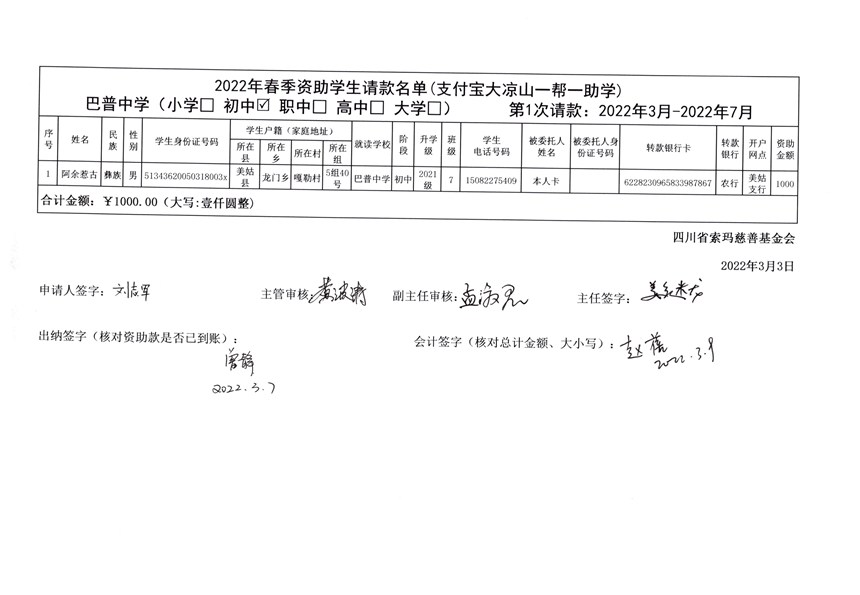 2022年春季资助学生请款名单(支付宝大凉山一帮一助学)
巴普中学（小学□ 初中☑ 职中□ 高中□ 大学□） 第1次请款：2022年3月-2022年7月
序号 姓名 民族 性别 学生身份证号码 学生户籍（家庭地址） 就读学校 阶段 升学级 班级 学生电话号码 被委托人姓名 被委托人身份证号码 转款银行卡 转款银行 开户网点 资助金额
所在县 所在乡 所在村 所在组
1 阿余惹古 彝族 男 51343620050318003x 美姑县 龙门乡 嘎勒村 5组40号 巴普中学 初中 2021级 7 15082275409 本人卡 6228230965833987867 农行 美姑支行 1000
合计金额：￥1000.00（大写:壹仟圆整）
四川省索玛慈善基金会
2022年3月3日
申请人签字： 主管审核： 副主任审核： 主任签字：
出纳签字（核对资助款是否已到账）： 会计签字（核对总计金额、大小写）：
曾静
2022.3.7 2022.3.9